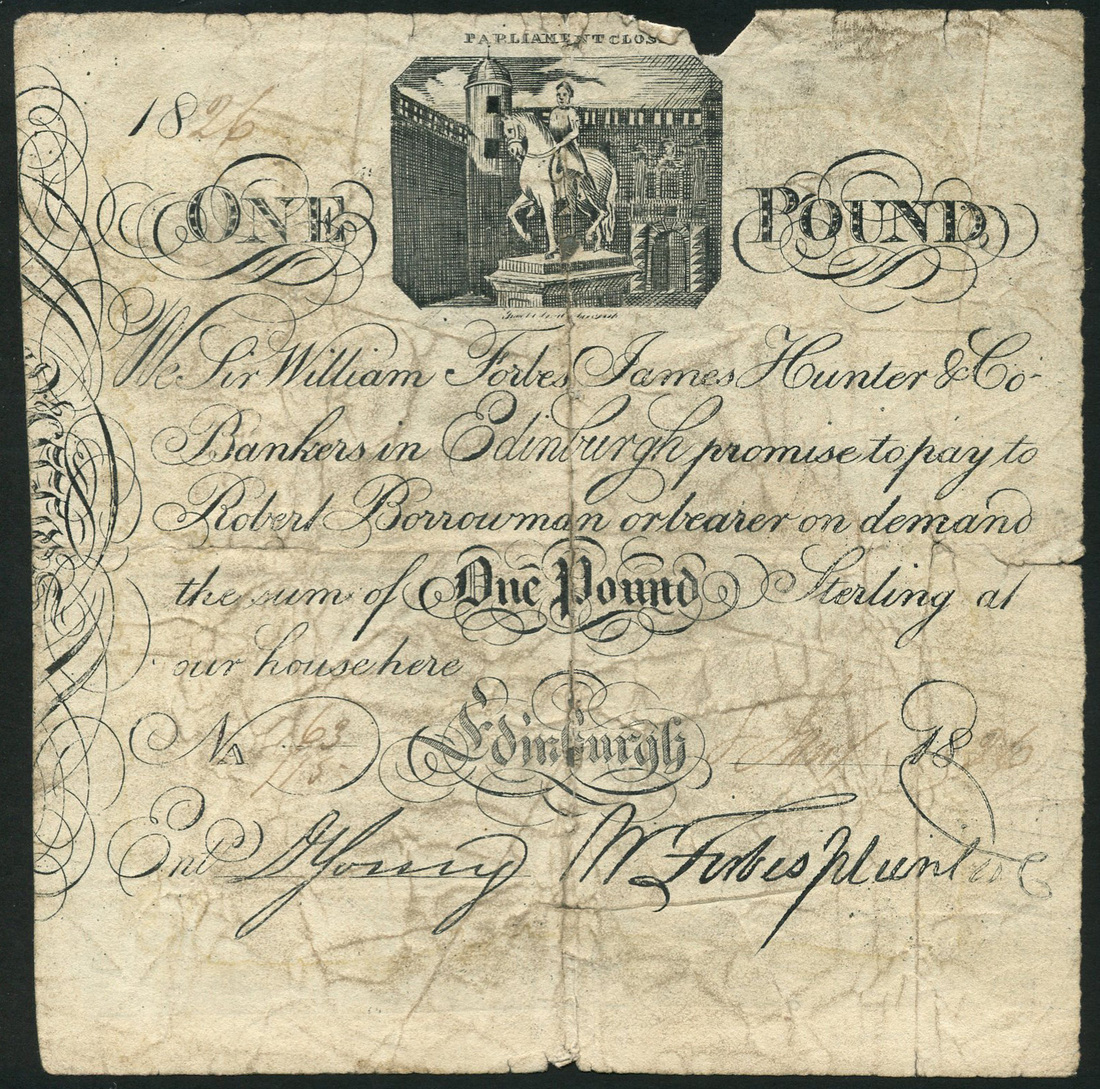 PARLIAMENT CLOS
1826
ONE POUND
We Sir William Forbes James Hunter & Co
Bankers in Edinburgh promise to pay to
Robert Borrowman or bearer on demand
the sum of One Pound Sterling at
our house here
No 163 Edinburgh 1826
Entd D Young Wm Forbes J Hunter & C